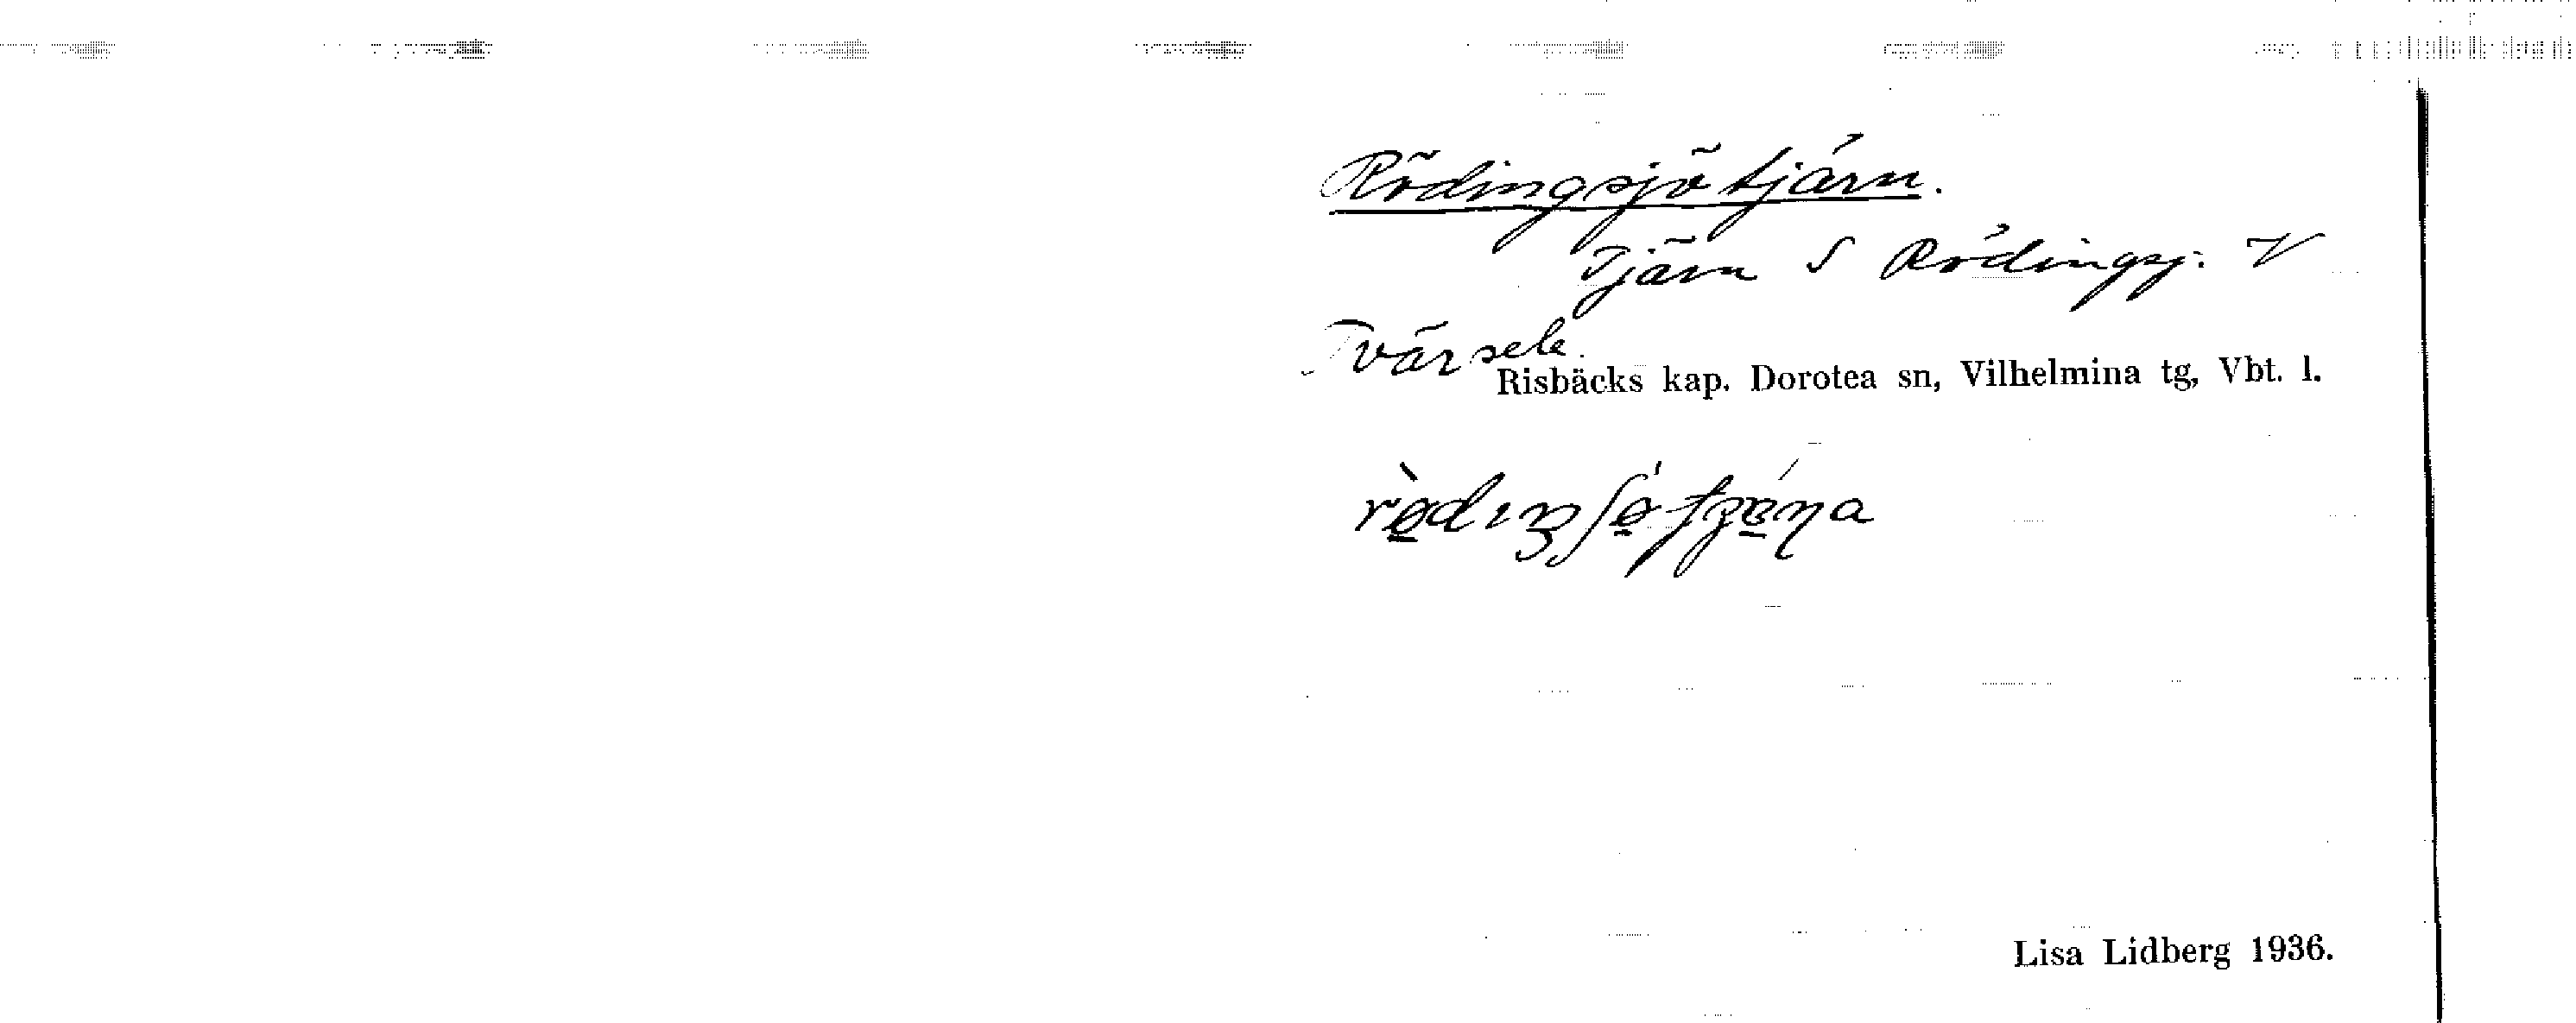 Rödingsjötjärn.
Tjärn S Rödingsj. V
Tvärsele.
Risbäcks kap. Dorotea sn, Vilhelmina tg, Vbt. l.
Lisa Lidberg 1936.